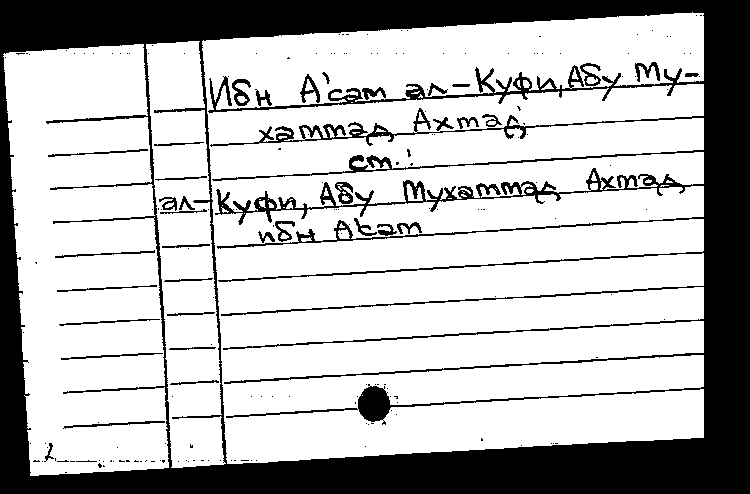 Ибн А'сам ал-Куфи, Абу Му-
хаммад Ахмад
см.:
ал-Куфи, Абу Мухаммад Ахмад
ибн А'сам